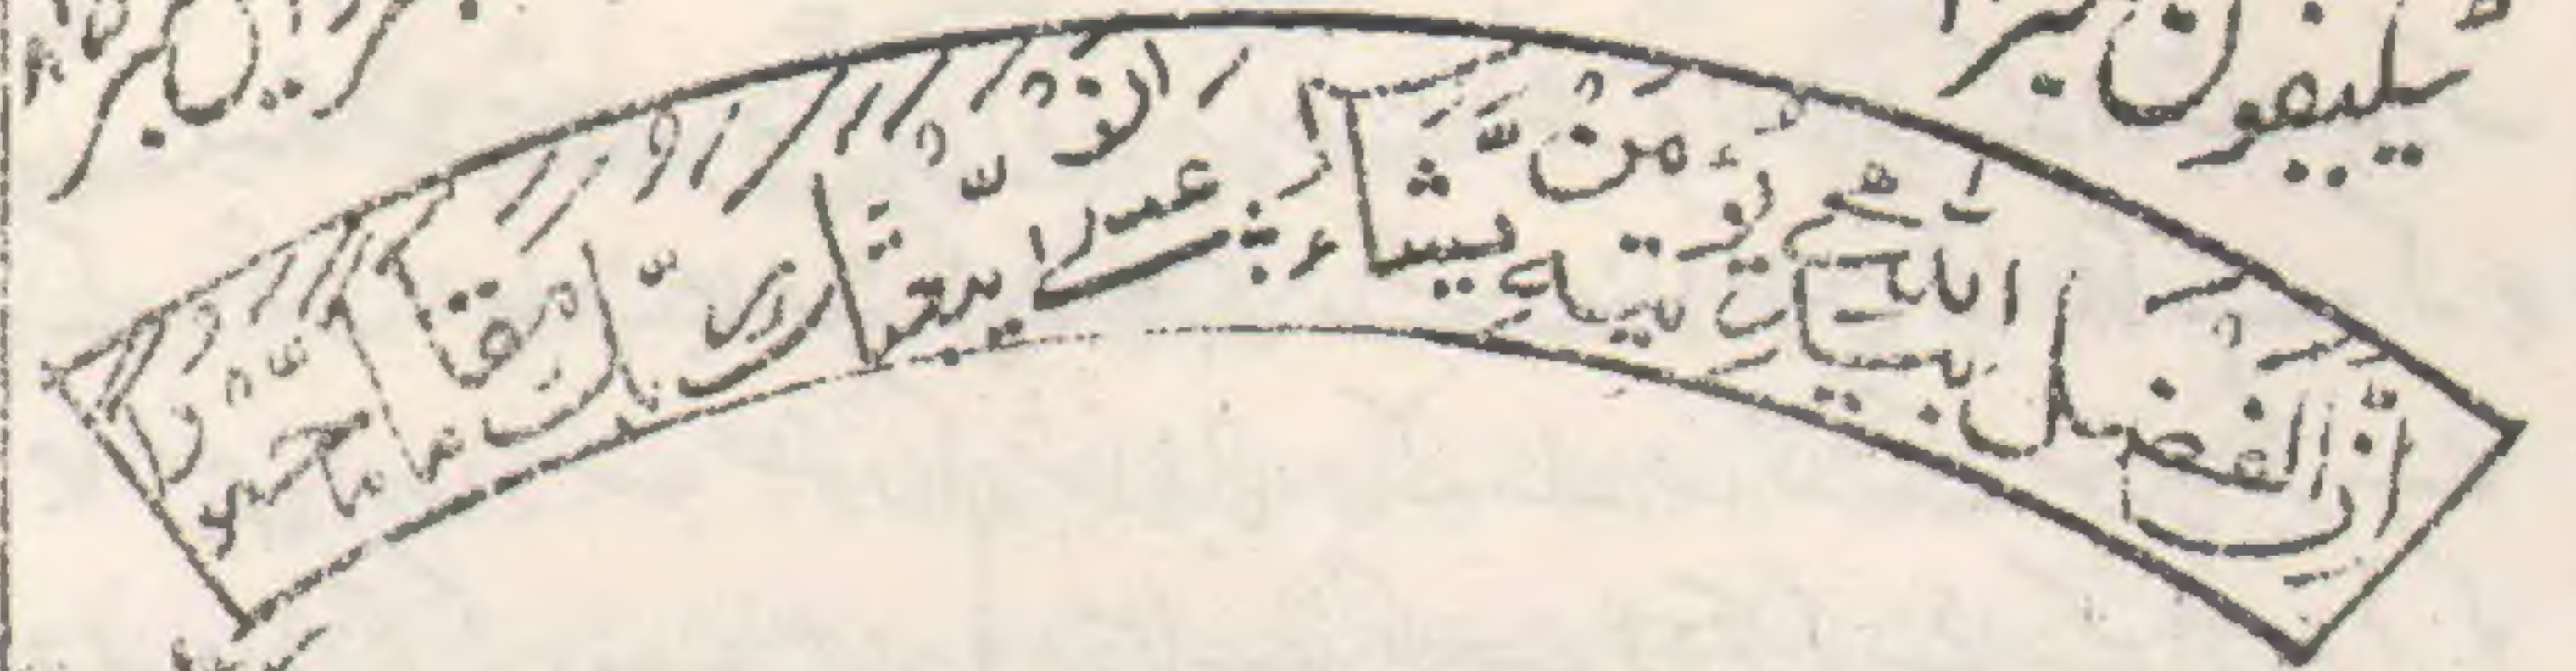 ٹیلیفون نمبر
اِنَّ الْفَضْلَ بِيَدِ اللّٰهِ يُؤْتِيْهِ مَنْ يَّشَآءُ ۞ عَسٰٓى اَنْ يَّبْعَثَكَ رَبُّكَ مَقَامًا مَّحْمُوْدًا